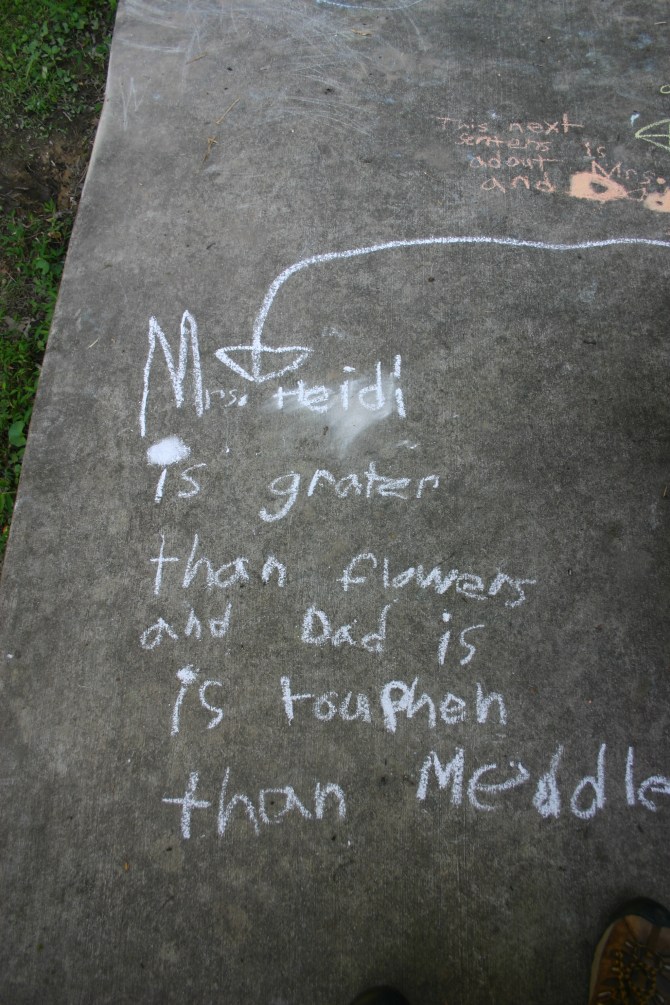 This next
senters is
adout Mrs.
and
Mrs. Heidi
is grater
than flowers
and Dad is
is touphen
than Meddle